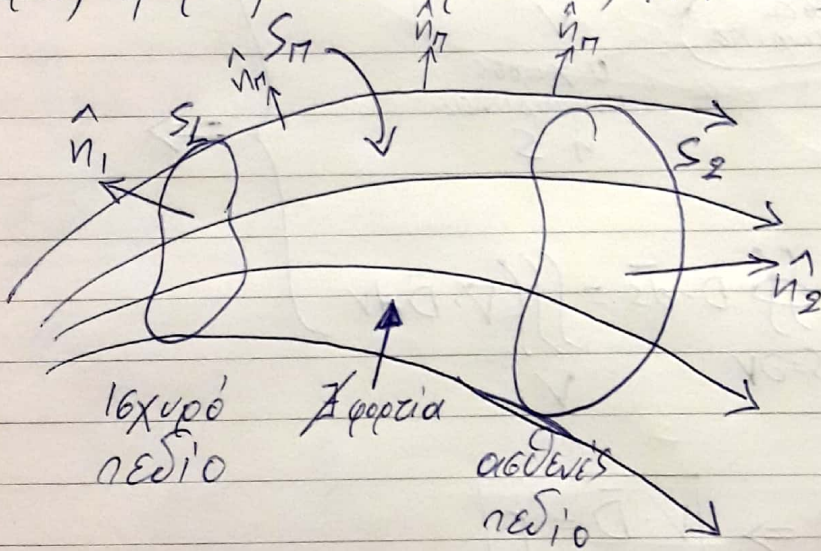 n̂π n̂π
Sπ
n̂π
S₁
n̂₁
S₂
n̂₂
Ισχυρό
πεδίο
∄ φορτία
ασθενές
πεδίο